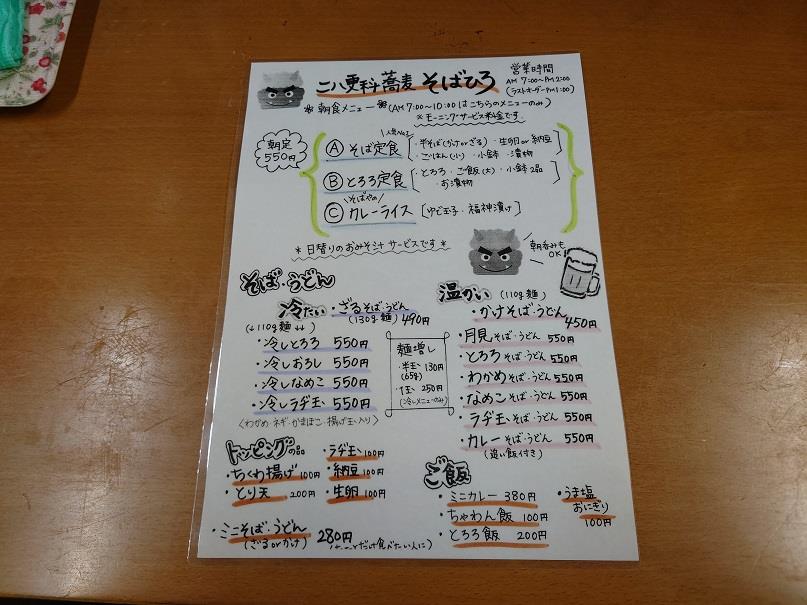 二八更科蕎麦 そばひろ
営業時間
AM 7:00~PM 2:00
(ラストオーダーPM 1:00)
※朝食メニュー※(AM 7:00~10:00はこちらのメニューのみ)
※モーニングサービス料金です
朝定
550円
人気No.1
Ⓐ そば定食
・半そば(かけorざる)・生卵or納豆
・ごはん(小)・小鉢・漬物
Ⓑ とろろ定食
・とろろ・ご飯(大)・小鉢2品
・お漬物
そばやの
Ⓒ カレーライス [ゆで玉子・福神漬け]
*日替りのおみそ汁サービスです*
朝呑みも
OK!
そば・うどん
冷たい
(↓110g麺↓↓)
・ざるそば・うどん
(130g麺) 490円
・冷しとろろ 550円
・冷しおろし 550円
・冷しなめこ 550円
・冷しラヂ玉 550円
(わかめ・ネギ・かまぼこ・揚げ玉入り)
麺増し
・半玉 130円
(65g)
・1玉 250円
(冷しメニューのみ)
温かい (110g麺)
・かけそば・うどん
450円
・月見そば・うどん 550円
・とろろそば・うどん 550円
・わかめそば・うどん 550円
・なめこそば・うどん 550円
・ラヂ玉そば・うどん 550円
・カレーそば・うどん 550円
(追い飯付き)
トッピングの品
・ちくわ揚げ 100円
・とり天 200円
・ラヂ玉 100円
・納豆 100円
・生卵 100円
・ミニそば・うどん
(ざるorかけ)
280円
だけ食べたい人に)
ご飯
・ミニカレー 380円
・ちゃわん飯 100円
・とろろ飯 200円
・うま塩
おにぎり
100円